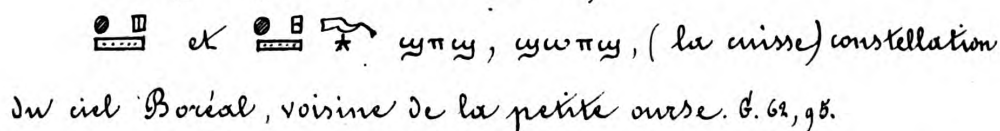 et ϣⲡϣ, ϣⲱⲡϣ, (la cuisse) constellation
du ciel Boréal, voisine de la petite ourse. G. 62, 95.